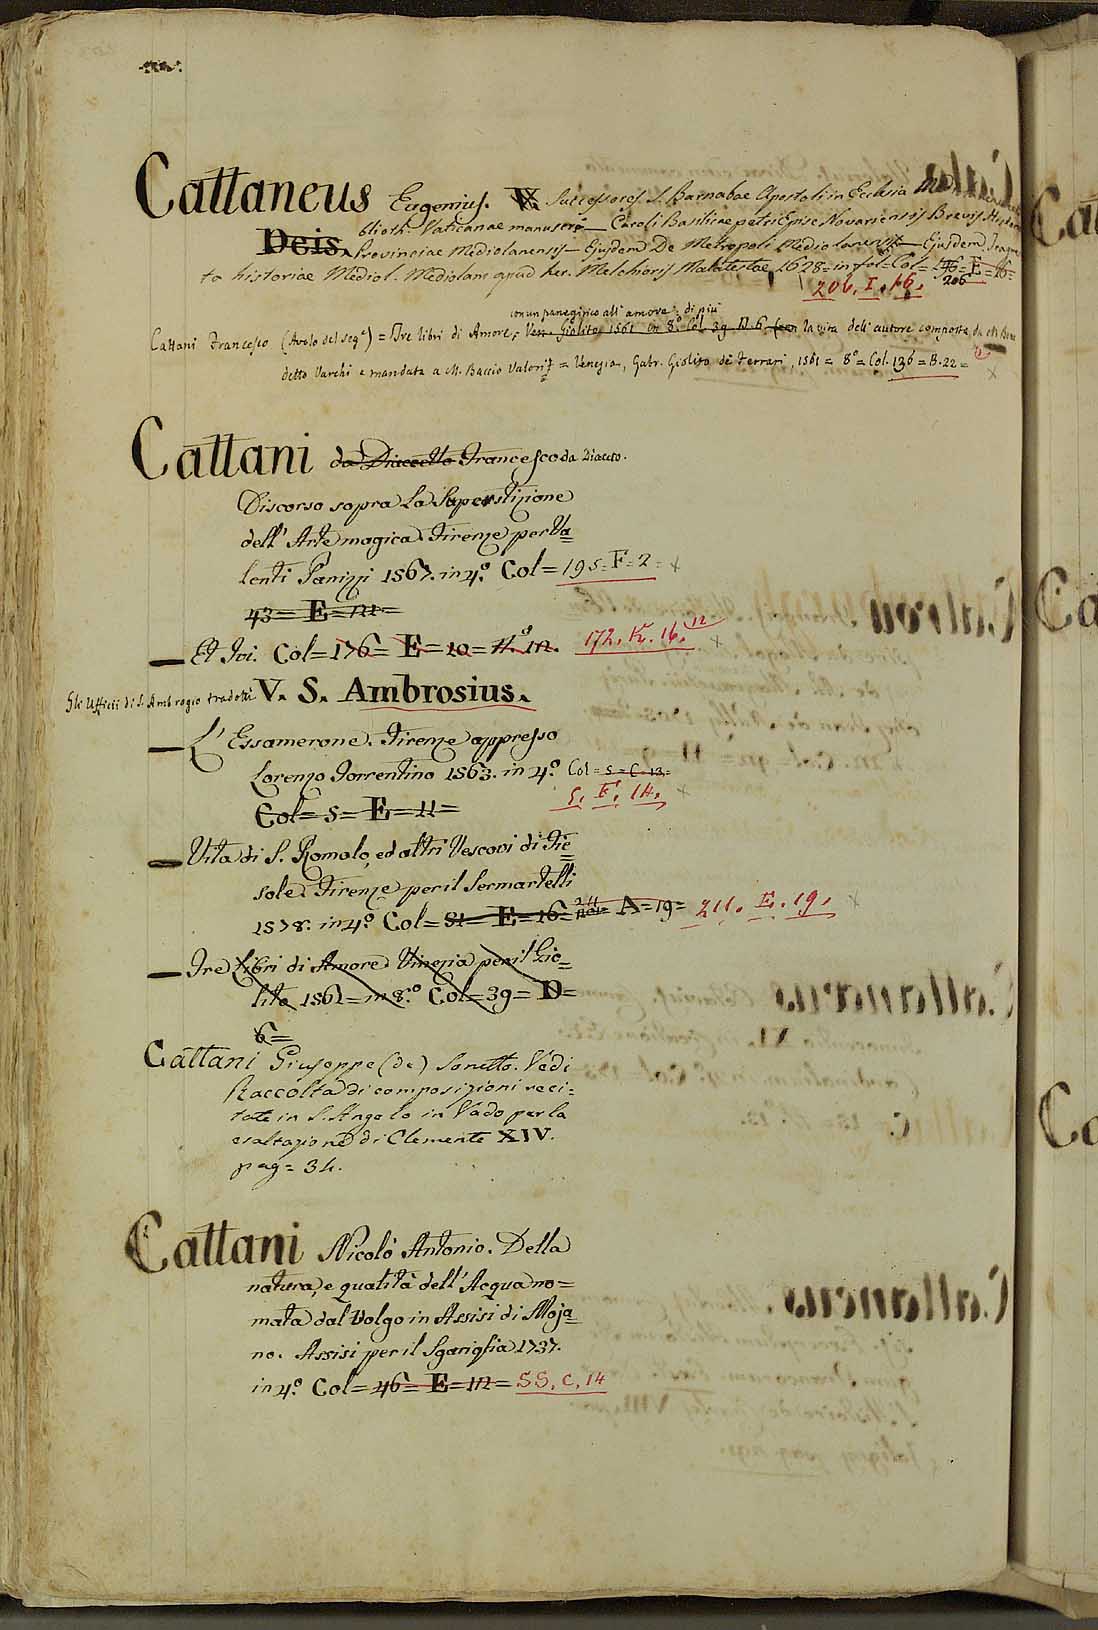 Cattaneus Eugenius. V. Successores S. Barnabae Apostoli in Ecclesia
Deis. Vaticanae manuscri — Caroli Basilicae petri Episc Novariensis Brevis
Provinciae Mediolanensis — Ejusdem De Metropoli Mediolanensi — Ejusdem
ta historiae Mediol. Mediolani apud her. Melchioris Malatestae 1628 = in fol = Col = 146 = E = 16 =
206. I. 16. 206
con un panegirico all' amore; di più
Cattani Francesco (Avolo del seg.e) = Tre libri di Amore, Ven. Giolito 1561 in 8.º Col. 39 D. 6 (con la vita dell' autore composta da
detto Varchi e mandata a M. Baccio Valori = Venezia, Gabr. Giolito de' Ferrari, 1561 = 8º = Col. 136 = B. 22 =
Cattani da Diacetto Francesco da Diaceto.
Discorso sopra la Superstizione
dell' Arte magica. Firenze per Va=
lenti Panizzi 1567. in 4.º Col = 195 = F = 2 = x
43 = E = 122 =
— Et Ivi. Col = 176 = E = 10 = n.º 12. 172. K. 16. 12 x
Gli Ufficii di S. Ambrogio tradotti V. S. Ambrosius.
— L' Essamerone. Firenze appresso
Lorenzo Torrentino 1563. in 4.º Col = 5 = C. 13 =
Col = 5 = E = 11 = 5. E. 14. x
— Vita di S. Romolo, ed altri Vescovi di Fie=
sole. Firenze per il Sermartelli
1578. in 4.º Col = 81 = E = 16 = 211 = A = 19 = 211. E. 19. x
— Tre Libri di Amore. Vinezia per il Gio=
lito 1561 = in 8.º Col = 39 = D =
6 =
Cattani Giuseppe (de) Sonetto. Vedi
Raccolta di composizioni reci=
tate in S. Angelo in Vado per la
esaltazione di Clemente XIV.
pag = 34.
Cattani Nicolò Antonio. Della
natura, e qualità dell' Acqua no=
mata dal Volgo in Assisi di Moja=
no. Assisi per il Sgariglia 1737.
in 4.º Col = 46 = E = 112 = SS, C, 14